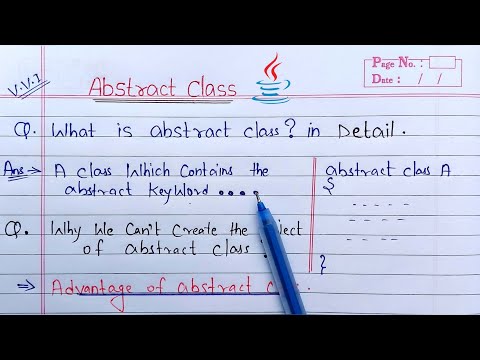 V.V.I
Abstract Class
Page No. :
Date : / /
Q. What is abstract class? in Detail.
Ans → A class which contains the
abstract keyword ....
abstract class A
{
- - - - -
- - - - -
}
Q. Why We Can't Create the
of abstract class
⇒ Advantage of abstract